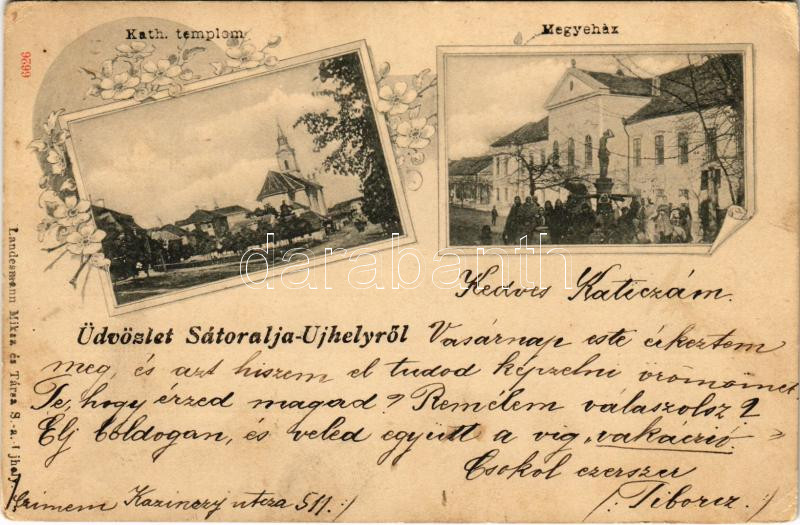 Kath. templom
Megyeház
9299
darabanth
Kedves Katiczám.
Üdvözlet Sátoralja-Ujhelyről
Vasárnap este érkeztem
meg, és azt hiszem el tudod képzelni örömömet
Te, hogy érzed magad? Remélem válaszolsz?
Élj boldogan, és veled együtt a vig „vakáczió."
Csokol ezerszer
/: Tiborcz :/
/: Czimem Kazinczy utcza 511. :/
Landesmann Miksa és Társa S.-a.-Ujhely.